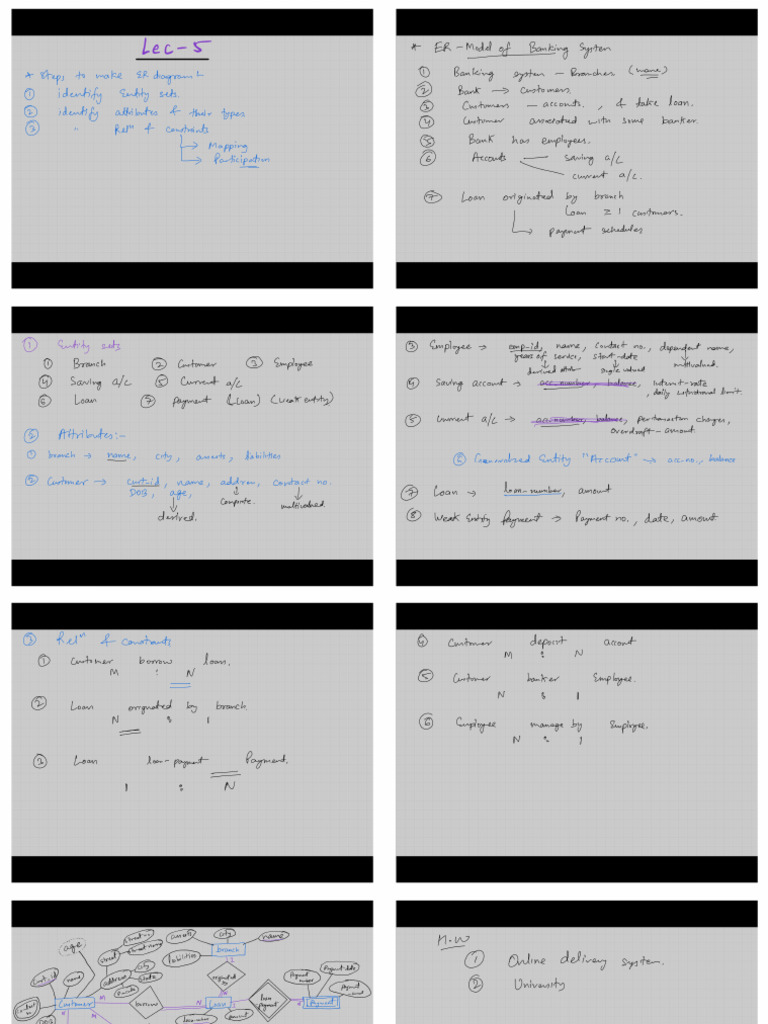 Lec-5
* Steps to make ER diagram :-
① identify Entity sets.
② identify attributes & their types
③ " Relⁿ & constraints
→ Mapping
→ Participation
* ER-Model of Banking System
① Banking system - Branches (name)
② Bank → Customers.
③ Customers - accounts. , & take loan.
④ Customer associated with some banker.
⑤ Bank has employees.
⑥ Accounts saving a/c
current a/c.
⑦ Loan originated by branch
Loan ≥ 1 customers.
→ payment schedules
① Entity sets
① Branch ② Customer ③ Employee
④ Saving a/c ⑤ Current a/c
⑥ Loan ⑦ payment (Loan) (weak entity)
② Attributes:-
① branch → name, city, assets, liabilities
② Customer → cust-id, name, address, contact no.
DOB, age,
composite. multivalued.
derived.
③ Employee → emp-id, name, contact no., dependent name,
years of service, start-date
derived attr single valued multivalued.
④ Saving account → acc-number, balance, interest-rate
, daily withdrawal limit.
⑤ current a/c → acc-number, balance, per-transaction charges,
overdraft-amount.
⑥ Generalised Entity "Account" → acc-no., balance
⑦ Loan → loan-number, amount
⑧ Weak Entity Payment → Payment no., date, amount
③ Relⁿ & constraints
① Customer borrow loan.
M : N
② Loan originated by branch
N : 1
③ Loan loan-payment Payment.
1 : N
④ Customer deposit account
M : N
⑤ Customer banker Employee.
N : 1
⑥ Employee manage by Employee.
N : 1
age
street-no
street-name
street
assets
city
name
liabilities
branch
cust_id
name
address
city
state
originated by
Payment number
Payment date
Payment amount
Customer
M
borrow
Loan
loan payment
Payment
DOB
loan-number
amount
H.W
① Online delivery system.
② University